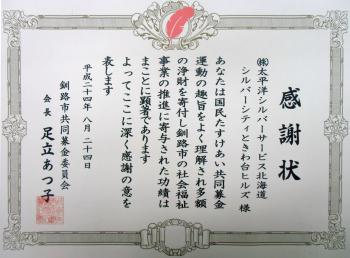 感謝状
㈱太平洋シルバーサービス北海道
シルバーシティときわ台ヒルズ 様
あなたは国民たすけあい共同募金
運動の趣旨をよく理解され多額
の浄財を寄付し釧路市の社会福祉
事業の推進に寄与された功績は
まことに顕著であります
よってここに深く感謝の意を
表します
平成二十四年 八月 二十四日
釧路市共同募金委員会
会長 足立あつ子